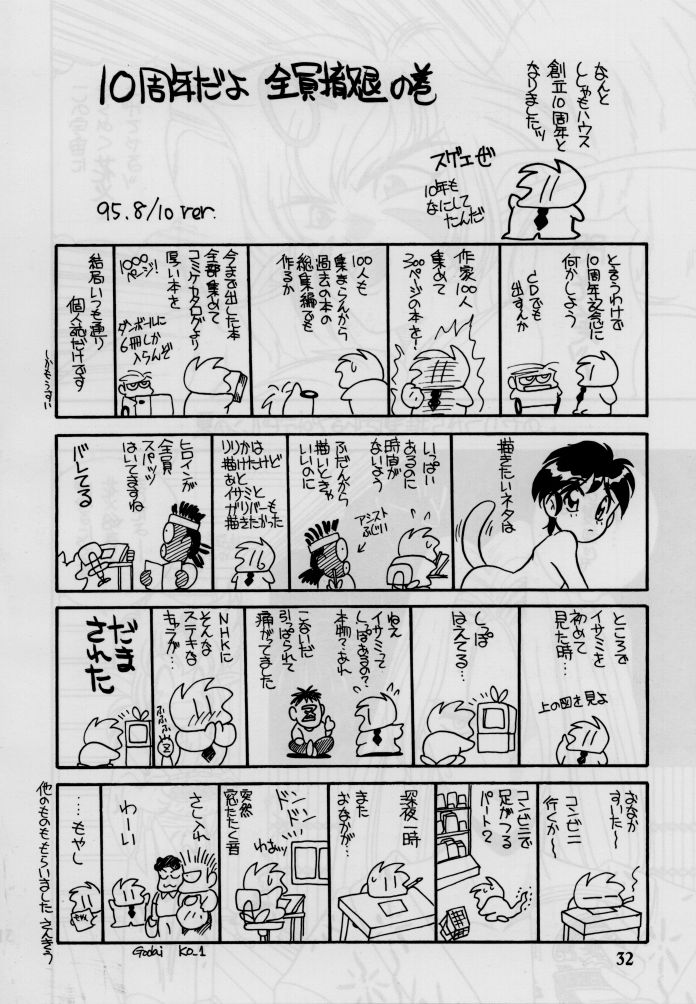 10周年だよ 全員撤退の巻
なんと
ししゃもハウス
創立10周年と
なりましたッ
スゲエぜ
10年も
なにして
たんだ
95.8/10 ver.
と言うわけで
10周年記念に
何かしよう
CDでも
出すんか
作家100人
集めて
300ページの本を!
100人も
集まらんから
過去の本の
総集編でも
作るか
今まで出した本
全部集めて
コミケカタログより
厚い本を
1000ページ!
ダンボールに
6冊しか
入らんぞ
結局いつも通り
個人誌だけです
しかもうすい
描きたいネタは
いっぱい
あるのに
時間が
ないよう
ふだんから
描いときゃ
いいのに
アシスト
ふじい
りりかはけど
描けたけど
あと
イサミと
ガリバーも
描きたかった
ヒロインが
全員
スパッツ
はいてますね
バレてる
ところで
イサミを
初めて
見た時…
上の図を見よ
しっぽ
はえてる…
ねえ
イサミって
しっぽあるの?
本物?あれ
こないだ
引っぱられて
痛がってました
NHKに
そんな
ステキな
キャラが…
ふふふ
だま
された
おなか
すいた~
コンビニ
行くか~
コンビニで
足がつる
パート2
深夜一時
また
おなかが…
ドンドン
突然
窓たたく音
わぁッ
さしいれ
わーい
……もやし
もやし
他のものももらいました さんきう
Godai Ko_1
32